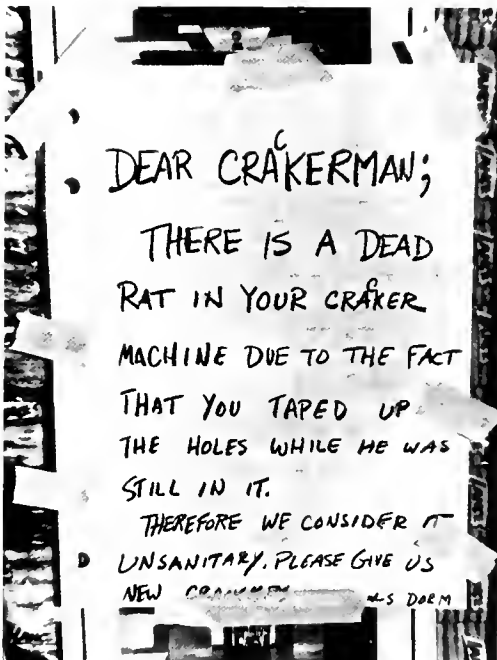 DEAR CRACKERMAN;
THERE IS A DEAD
RAT IN YOUR CRACKER
MACHINE DUE TO THE FACT
THAT YOU TAPED UP
THE HOLES WHILE HE WAS
STILL IN IT.
THEREFORE WE CONSIDER IT
UNSANITARY. PLEASE GIVE US
NEW DORM